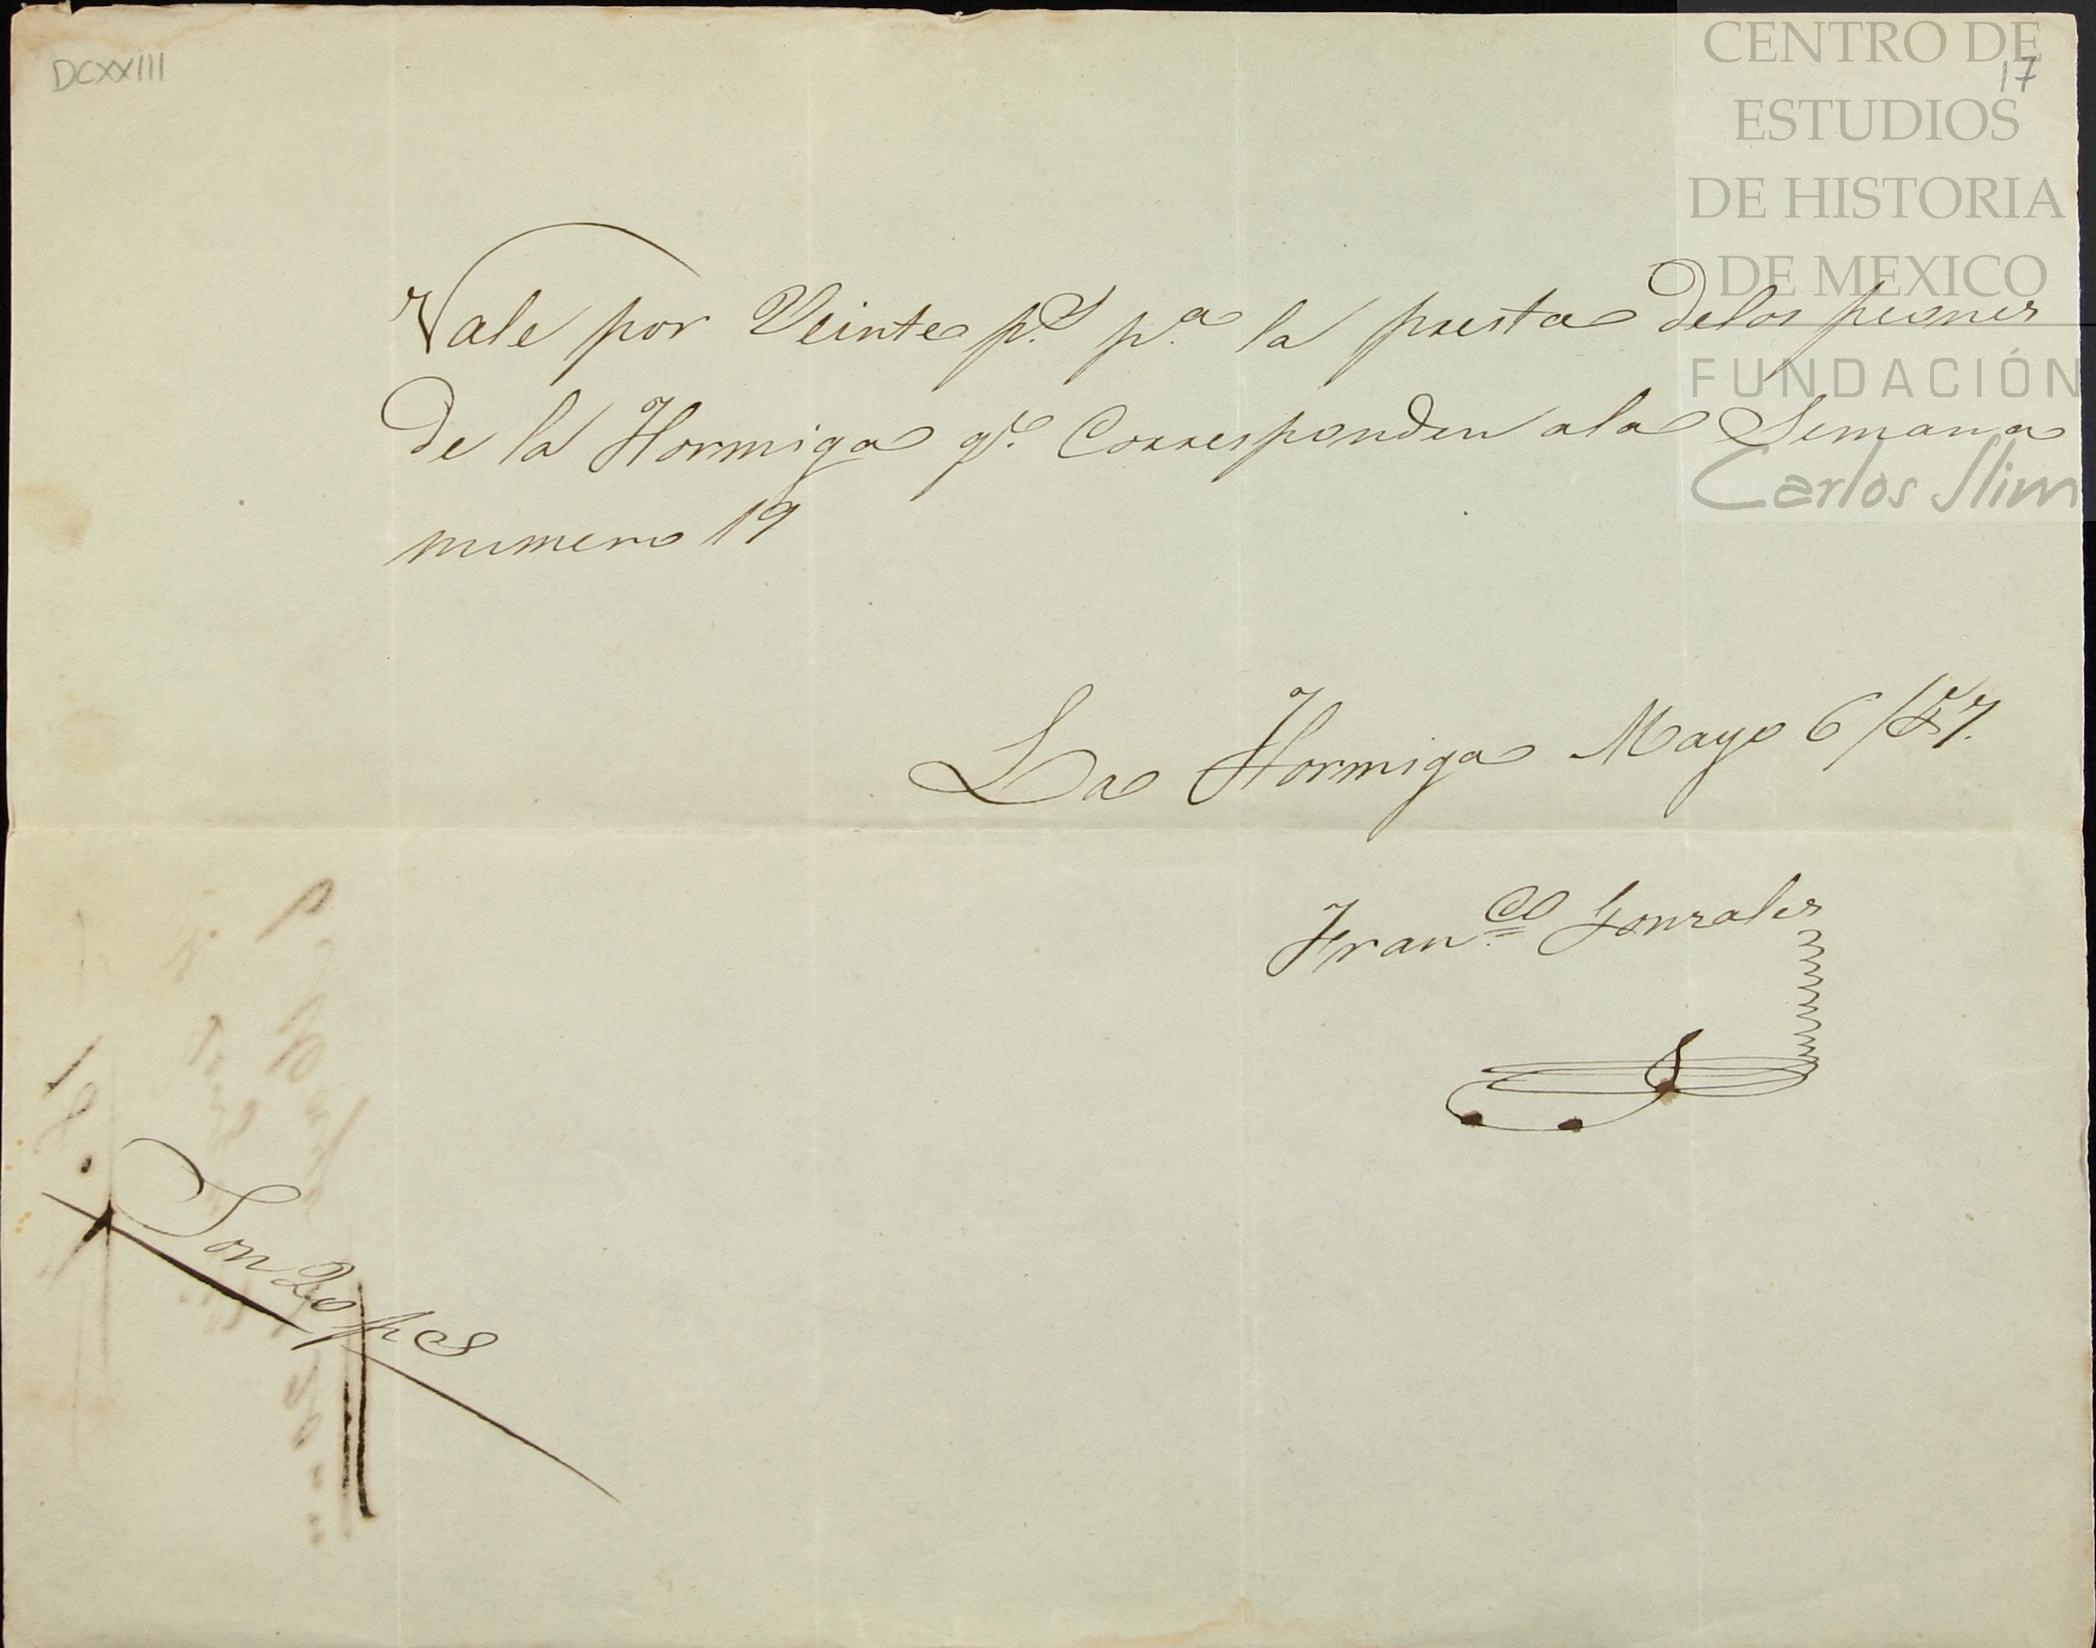 DCXXIII
17
CENTRO DE
ESTUDIOS
DE HISTORIA
DE MEXICO
FUNDACIÓN
Carlos Slim
Vale por Veinte p.s p.a la presta delos peones
de la Hormiga q.e Corresponden ala Semana
numero 19
La Hormiga Mayo 6/
Fran.co Gonzales
Son 20 p cs